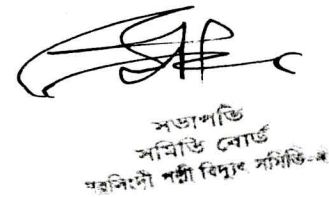 সভাপতি
সমিতি বোর্ড
নরসিংদী পল্লী বিদ্যুৎ সমিতি-